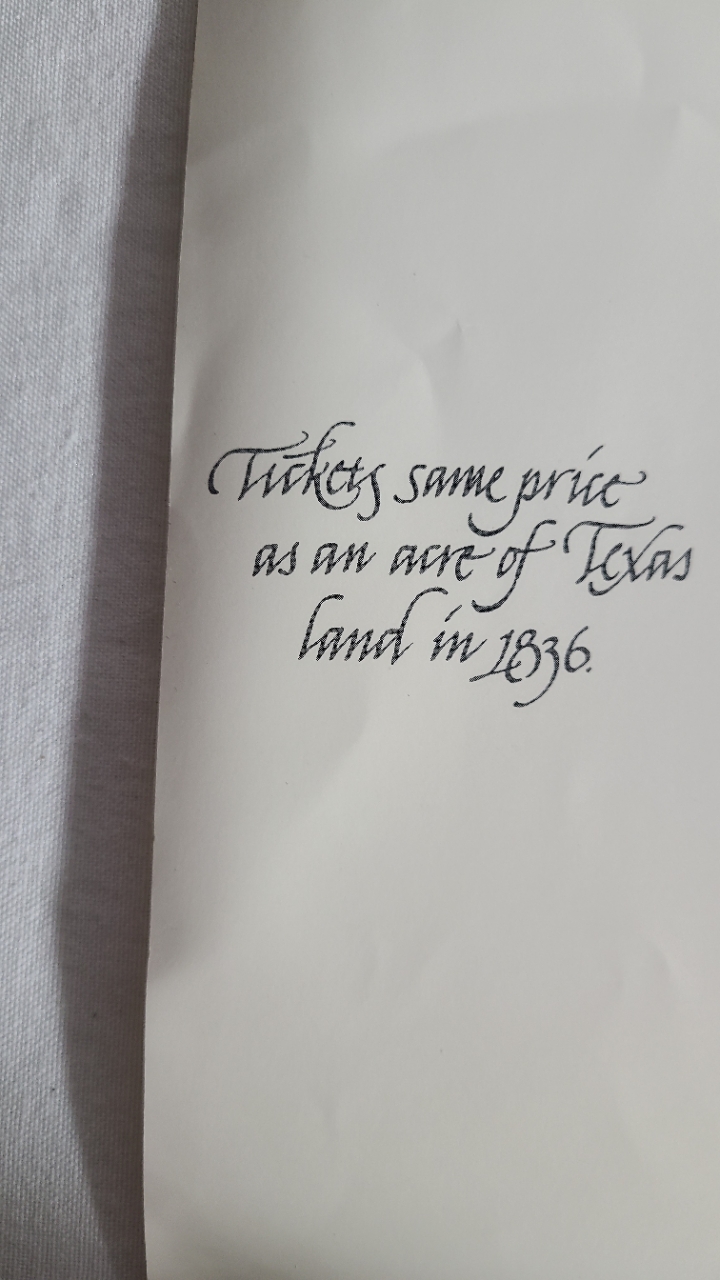 Tickets same price
as an acre of Texas
land in 1836.